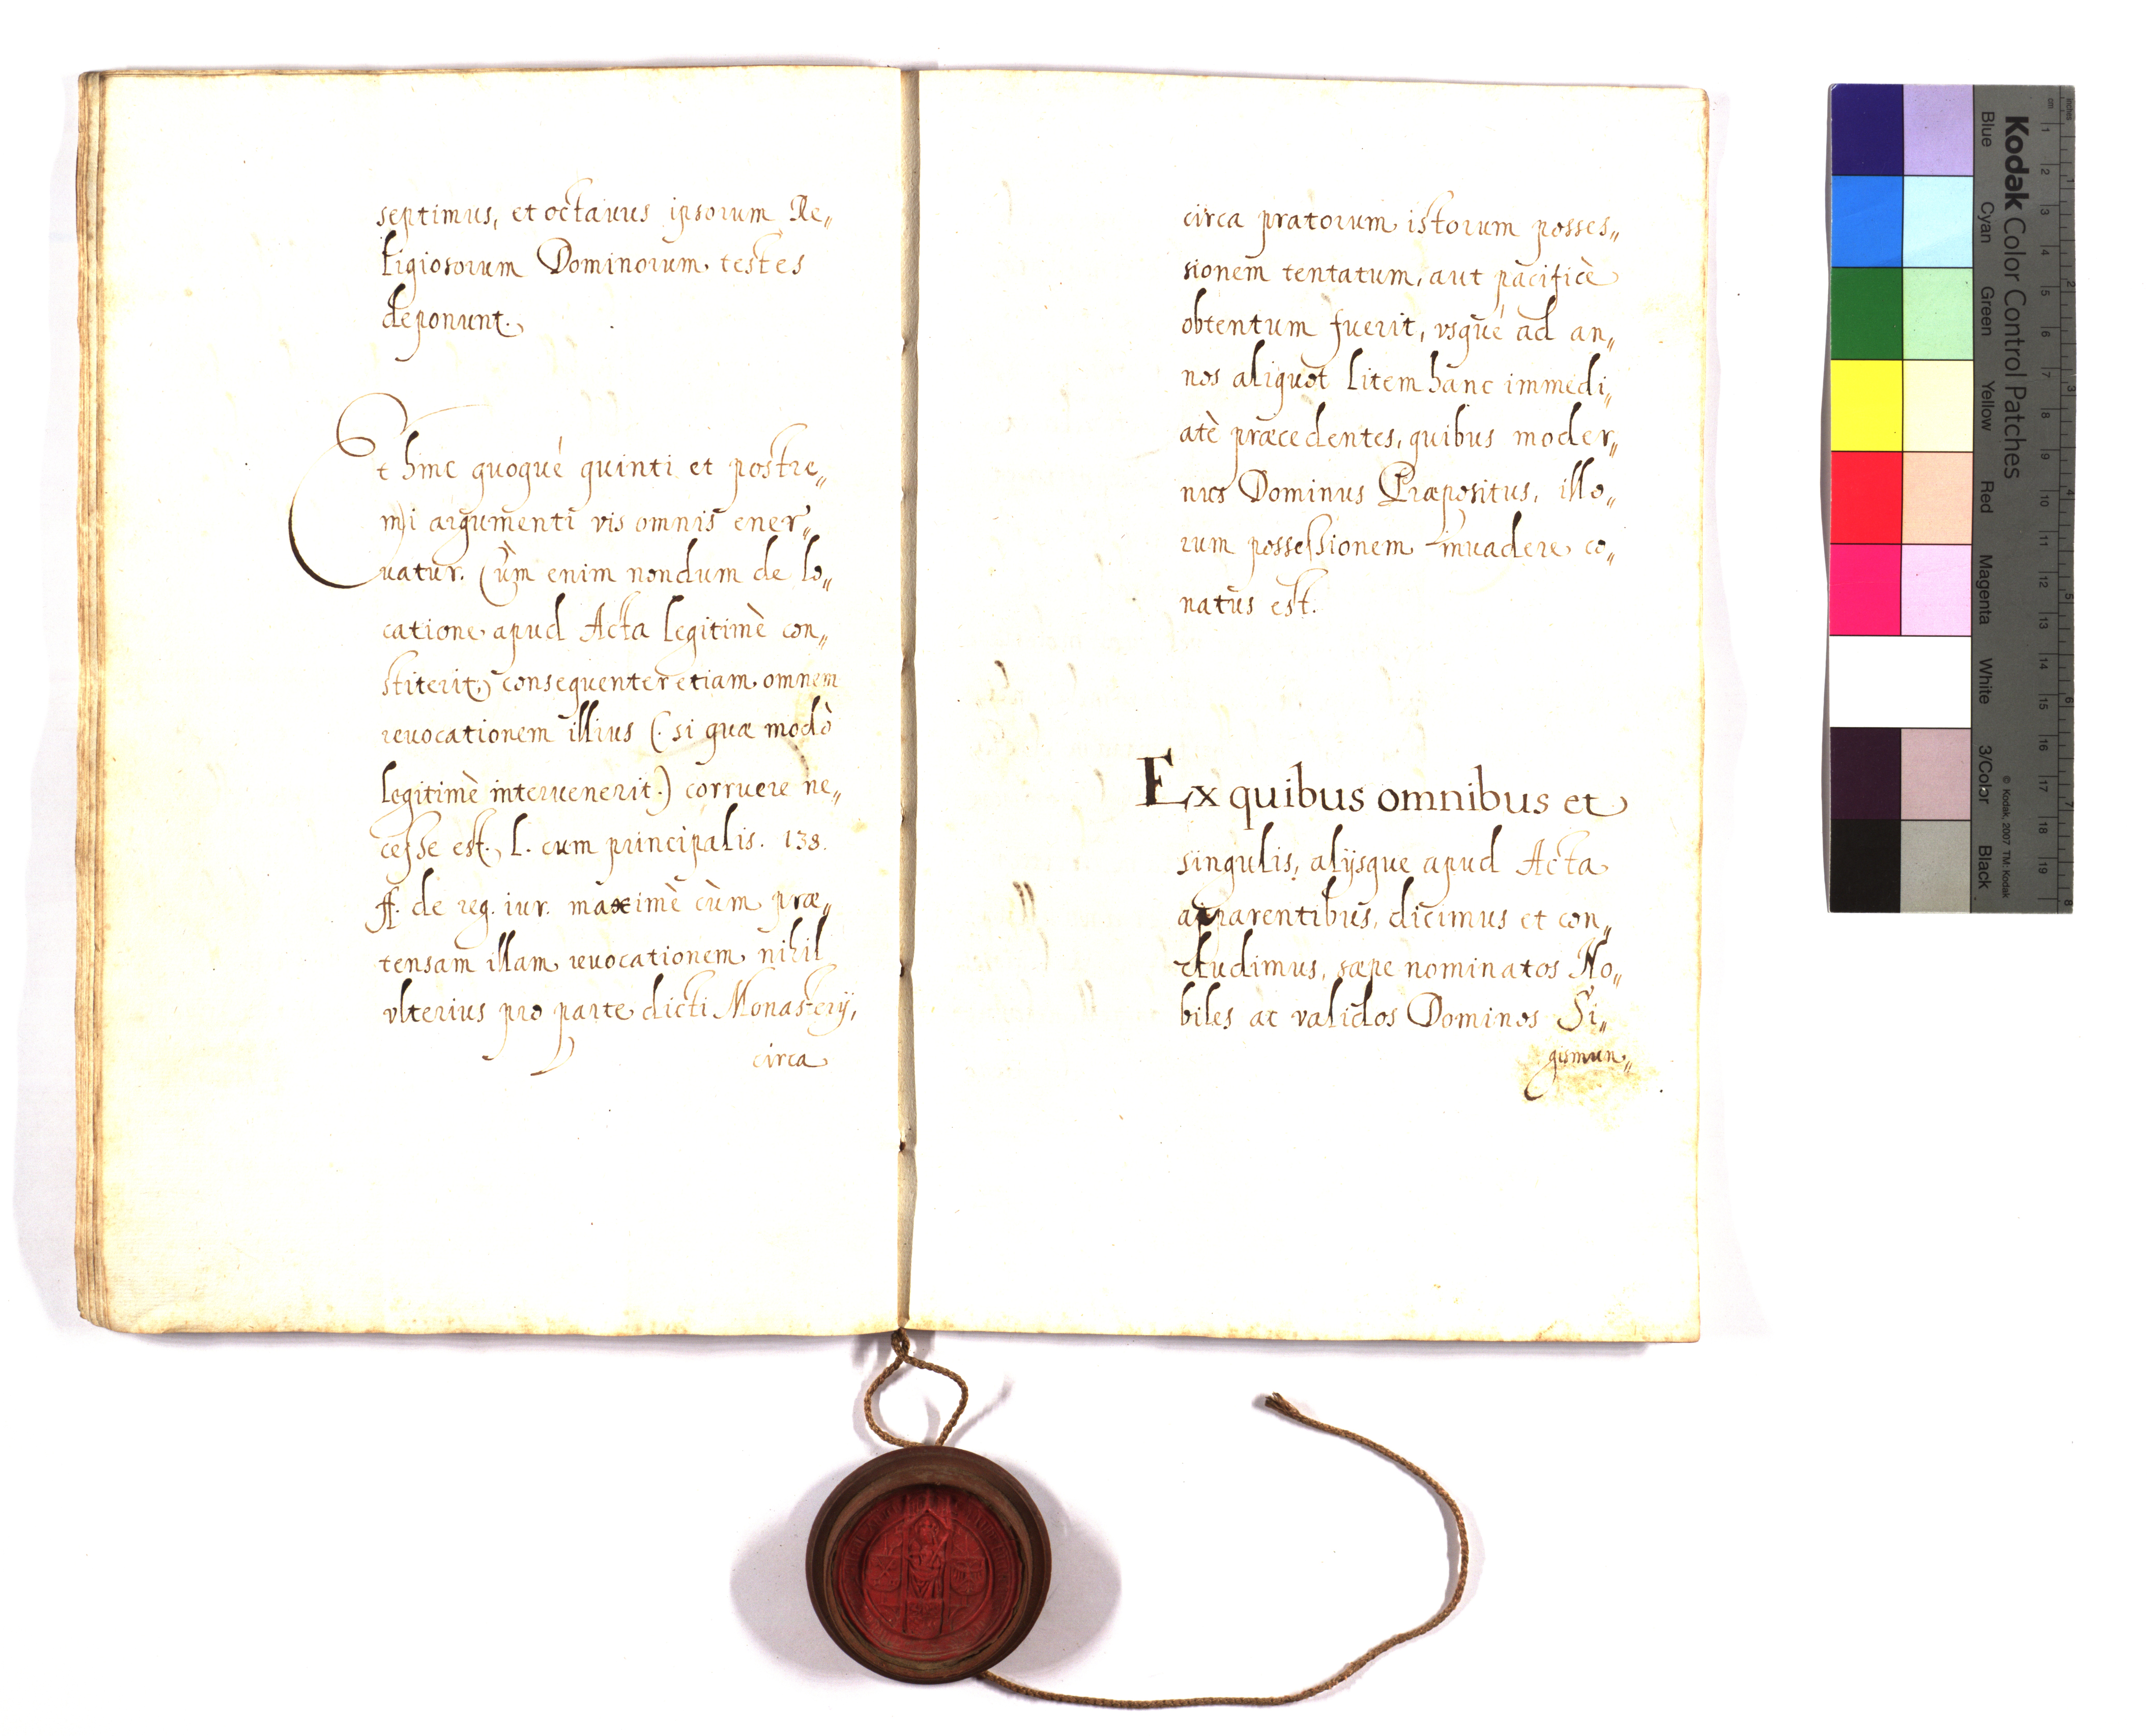 septimus, et octauus ipsorum Re„
ligiosorum Dominorum testes
deponunt.
Et hinc quoqué quinti et postre„
mi argumenti vis omnis ener„
uatur. Cùm enim nondum de lo„
catione apud Acta legitimè con„
stiterit, consequenter etiam omnem
reuocationem illius (: si quæ modò
legitimè interuenerit :) corruere ne„
cesse est. l. cum principalis. 138.
ff. de reg. iur. maximè cùm præ„
tensam illam reuocationem nihil
vlterius pro parte dicti Monasterij,
circa
circa pratorum istorum posses„
sionem tentatum, aut pacificè
obtentum fuerit, vsqué ad an„
nos aliquot litem hanc immedi„
atè præcedentes, quibus moder„
nus Dominus Præpositus, illo„
rum possessionem inuadere co„
natus est.
Ex quibus omnibus et
singulis, alijsque apud Acta
apparentibus, dicimus et con„
cludimus, sæpe nominatos No„
biles ac validos Dominos Si„
gismun„
Kodak Color Control Patches
Blue Cyan Green Yellow Red Magenta White 3/Color Black
© Kodak, 2007 TM: Kodak
cm 1 2 3 4 5 6 7 8 9 10 11 12 13 14 15 16 17 18 19
inches 1 2 3 4 5 6 7 8